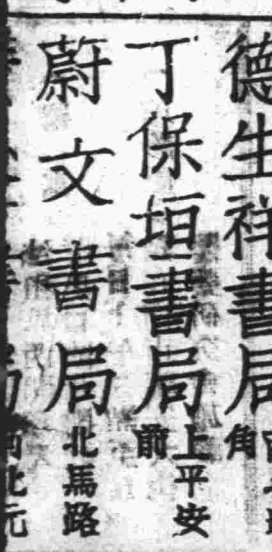 德生祥書局
角
丁保垣書局
上平安
前
蔚文書局
北馬路